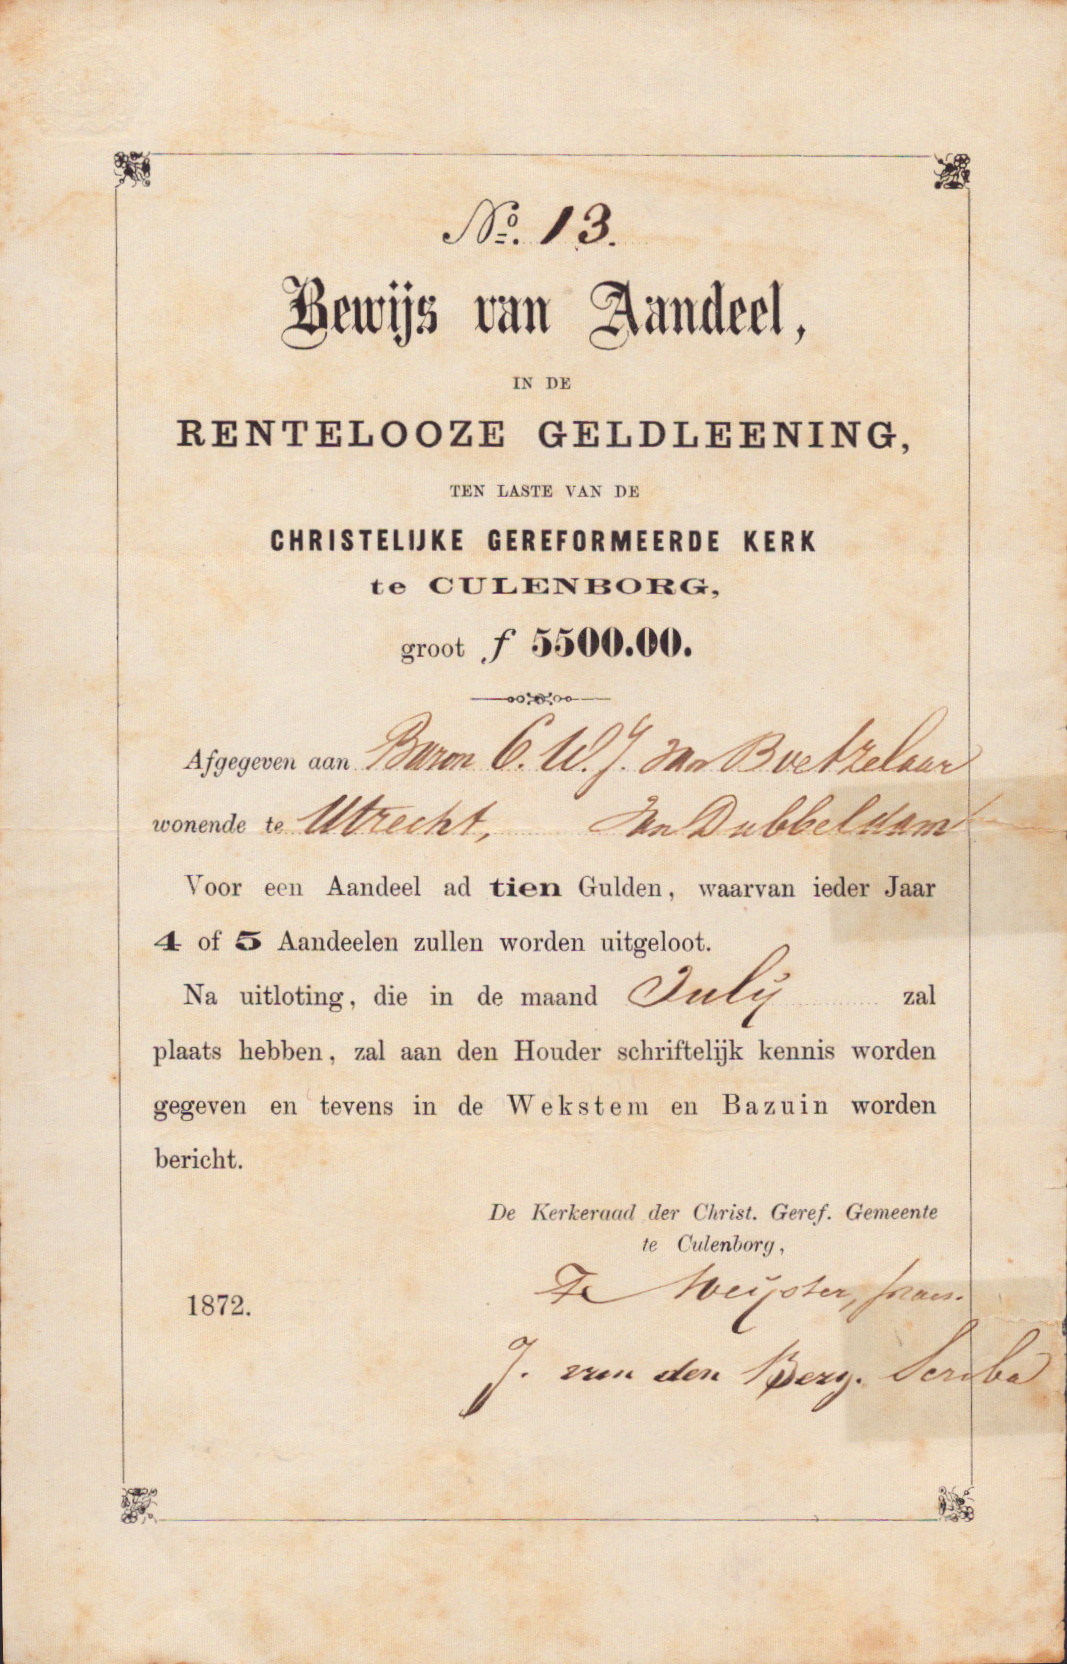 No. 13.
Bewijs van Aandeel,
IN DE
RENTELOOZE GELDLEENING,
TEN LASTE VAN DE
CHRISTELIJKE GEREFORMEERDE KERK
te CULENBORG,
groot f 5500.00.
Afgegeven aan Baron C. W. J. van Boetzelaar
wonende te Utrecht, van Dubbeldam
Voor een Aandeel ad tien Gulden, waarvan ieder Jaar
4 of 5 Aandeelen zullen worden uitgeloot.
Na uitloting, die in de maand July zal
plaats hebben, zal aan den Houder schriftelijk kennis worden
gegeven en tevens in de Wekstem en Bazuin worden
bericht.
De Kerkeraad der Christ. Geref. Gemeente
te Culenborg,
1872.
Meijster, praes.
J. van den Berg. Scriba